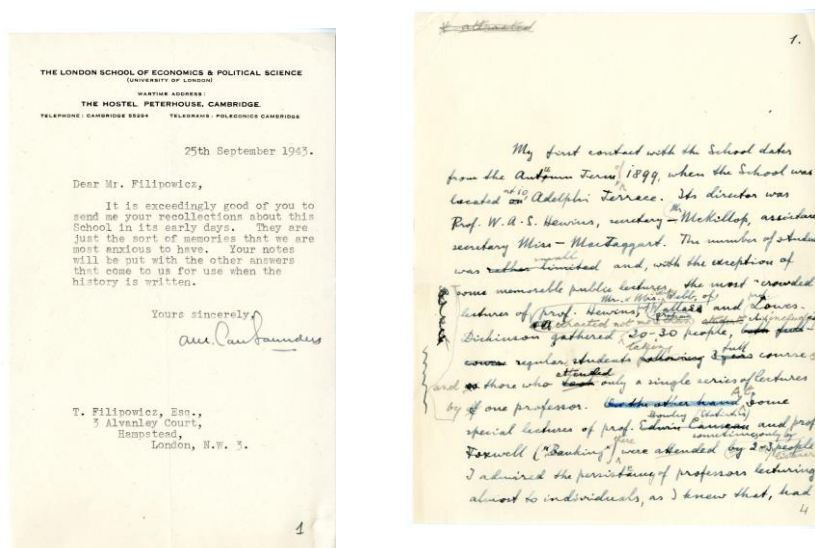 THE LONDON SCHOOL OF ECONOMICS & POLITICAL SCIENCE
(UNIVERSITY OF LONDON)
WARTIME ADDRESS:
THE HOSTEL, PETERHOUSE, CAMBRIDGE.
TELEPHONE: CAMBRIDGE 55294 TELEGRAMS: POLECONICS CAMBRIDGE
25th September 1943.
Dear Mr. Filipowicz,
It is exceedingly good of you to
send me your recollections about this
School in its early days. They are
just the sort of memories that we are
most anxious to have. Your notes
will be put with the other answers
that come to us for use when the
history is written.
Yours sincerely,
T. Filipowicz, Esq.,
3 Alvanley Court,
Hampstead,
London, N.W. 3.
1
attracted
1.
My first contact with the School dates
from the Autumn Term of 1899, when the School was
located at 10 Adelphi Terrace. Its director was
Prof. W.A.S. Hewins, secretary – Mr McKillop, assistant
secretary Miss – MacTaggart. The number of students
was rather limited and, with the exception of
small
some memorable public lectures, the most "crowded
Mr. & Mrs. Webb, of
lectures of prof. Hewins, Wallas and Lowes-
Dickinson gathered 20-30 people,
regular students following 3 years course
full
attended
and those who took only a single series of lectures
by one professor. On the other hand, Some
Bowley (Statistics)
special lectures of prof. Edwin Cannan and prof
sometimes only by
Foxwell ("Banking") were attended by 2-3 people
I admired the persistency of professors lecturing
almost to individuals, as I knew that, had
4